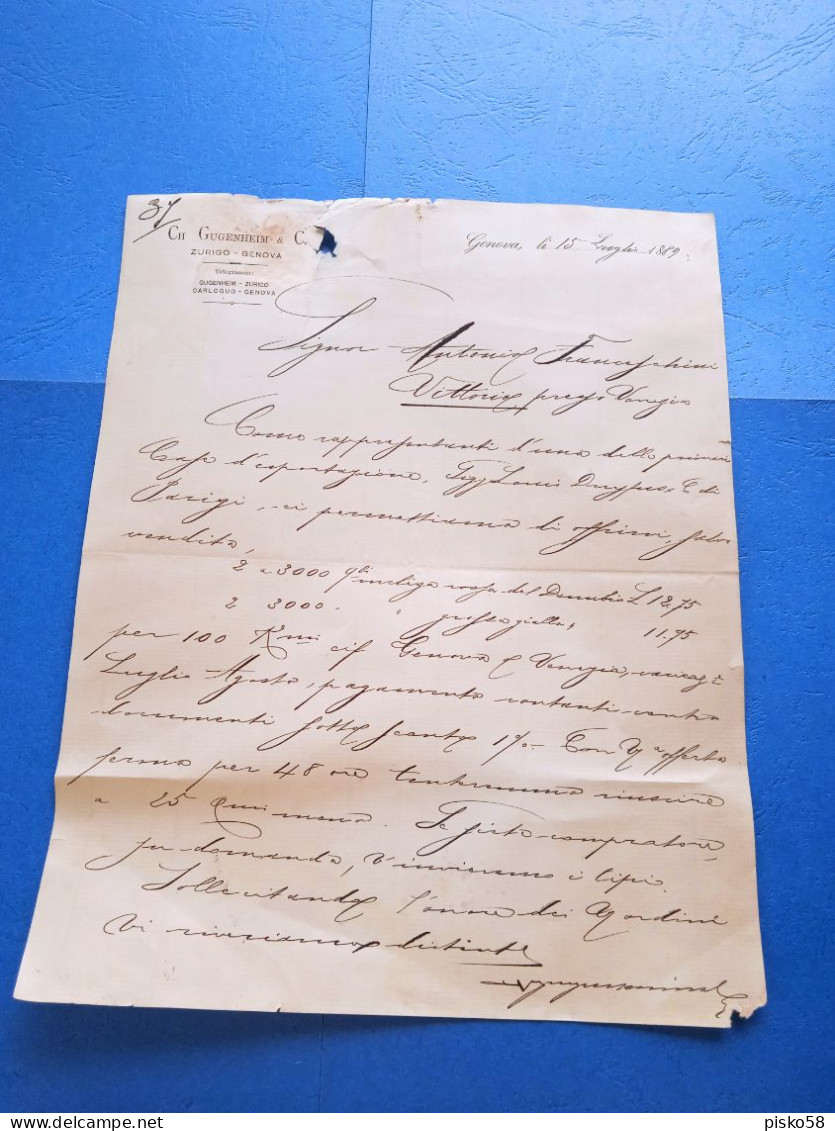 37
CH GUGENHEIM & C.
ZURIGO - GENOVA
Telegrammi:
GUGENHEIM - ZURIGO
CARLOGUG - GENOVA
Genova, li 15 Luglio 1889
Signor Antonio Franceschini
Vittorio presso Venezia
Come rappresentanti d'una delle primarie
Case d'esportazione, Sigg Louis Dreyfus & C di
Parigi, ci permettiamo di offrirvi, salvo
vendita,
2 a 3000 qli meliga rossa del Danubio L 12,75
2 3000 " grossa gialla, 11.95
per 100 K cif Genova o Venezia,
Luglio Agosto, pagamento contanti contro
documenti sotto sconto 1% Con offerta
ferma per 48 ore tenteremmo riuscire
a 25 Cmi meno. Se siete compratore,
su domanda, v'invieremo i tipi.
Sollecitando l'onore dei V ordini
Vi riveriamo distinte
pisko58